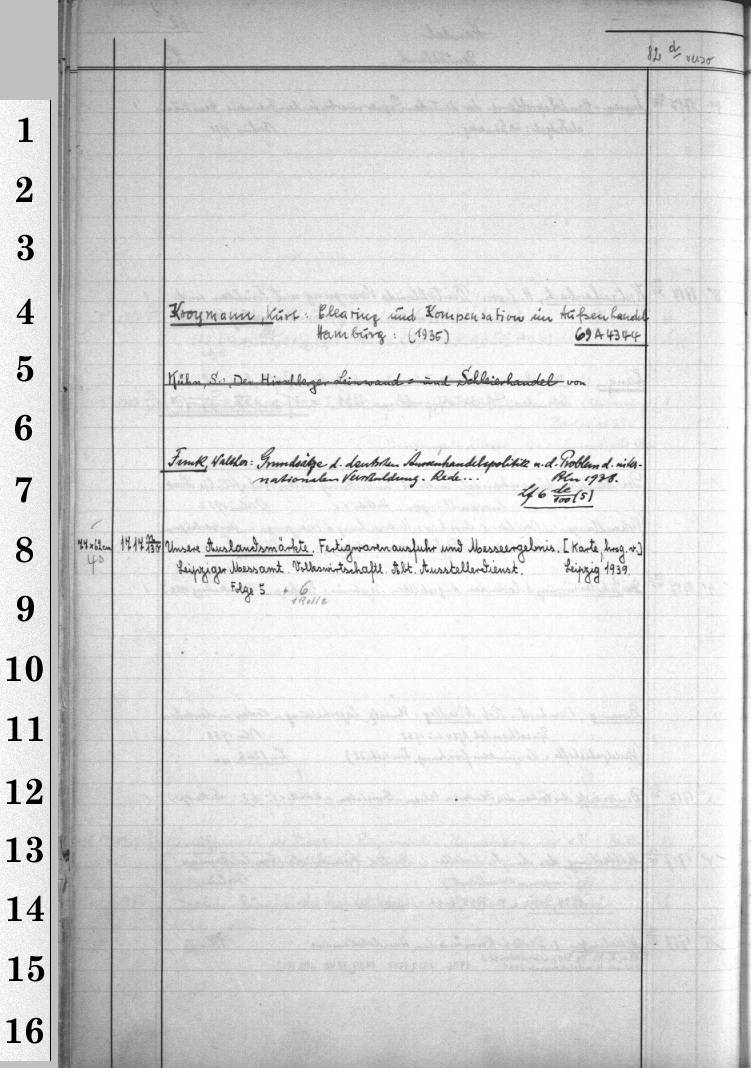 82 d verso
1
2
3
4
Kooymann, Kurt: Clearing und Kompensation im Außenhandel
Hamburg: (1935) 69 A 4344
5
Kühn, S.: Der Hirschberger Leinwand- und Schleierhandel von
6
Funk, Walther: Grundsätze d. deutschen Aussenhandelspolitik u. d. Problem d. inter-
7
nationalen Verschuldung. Rede... Bln 1938.
Zf 6 de/100 (5)
8
77 x 62 cm 1717 Unsere Auslandsmärkte. Fertigwarenausfuhr und Messeergebnis. [Karte, hrsg. v.]
4° Leipziger Messamt. Volkswirtschaftl. Abt. Ausstellerdienst. Leipzig 1939.
Folge 5 6
1 Rolle
9
10
11
12
13
14
15
16